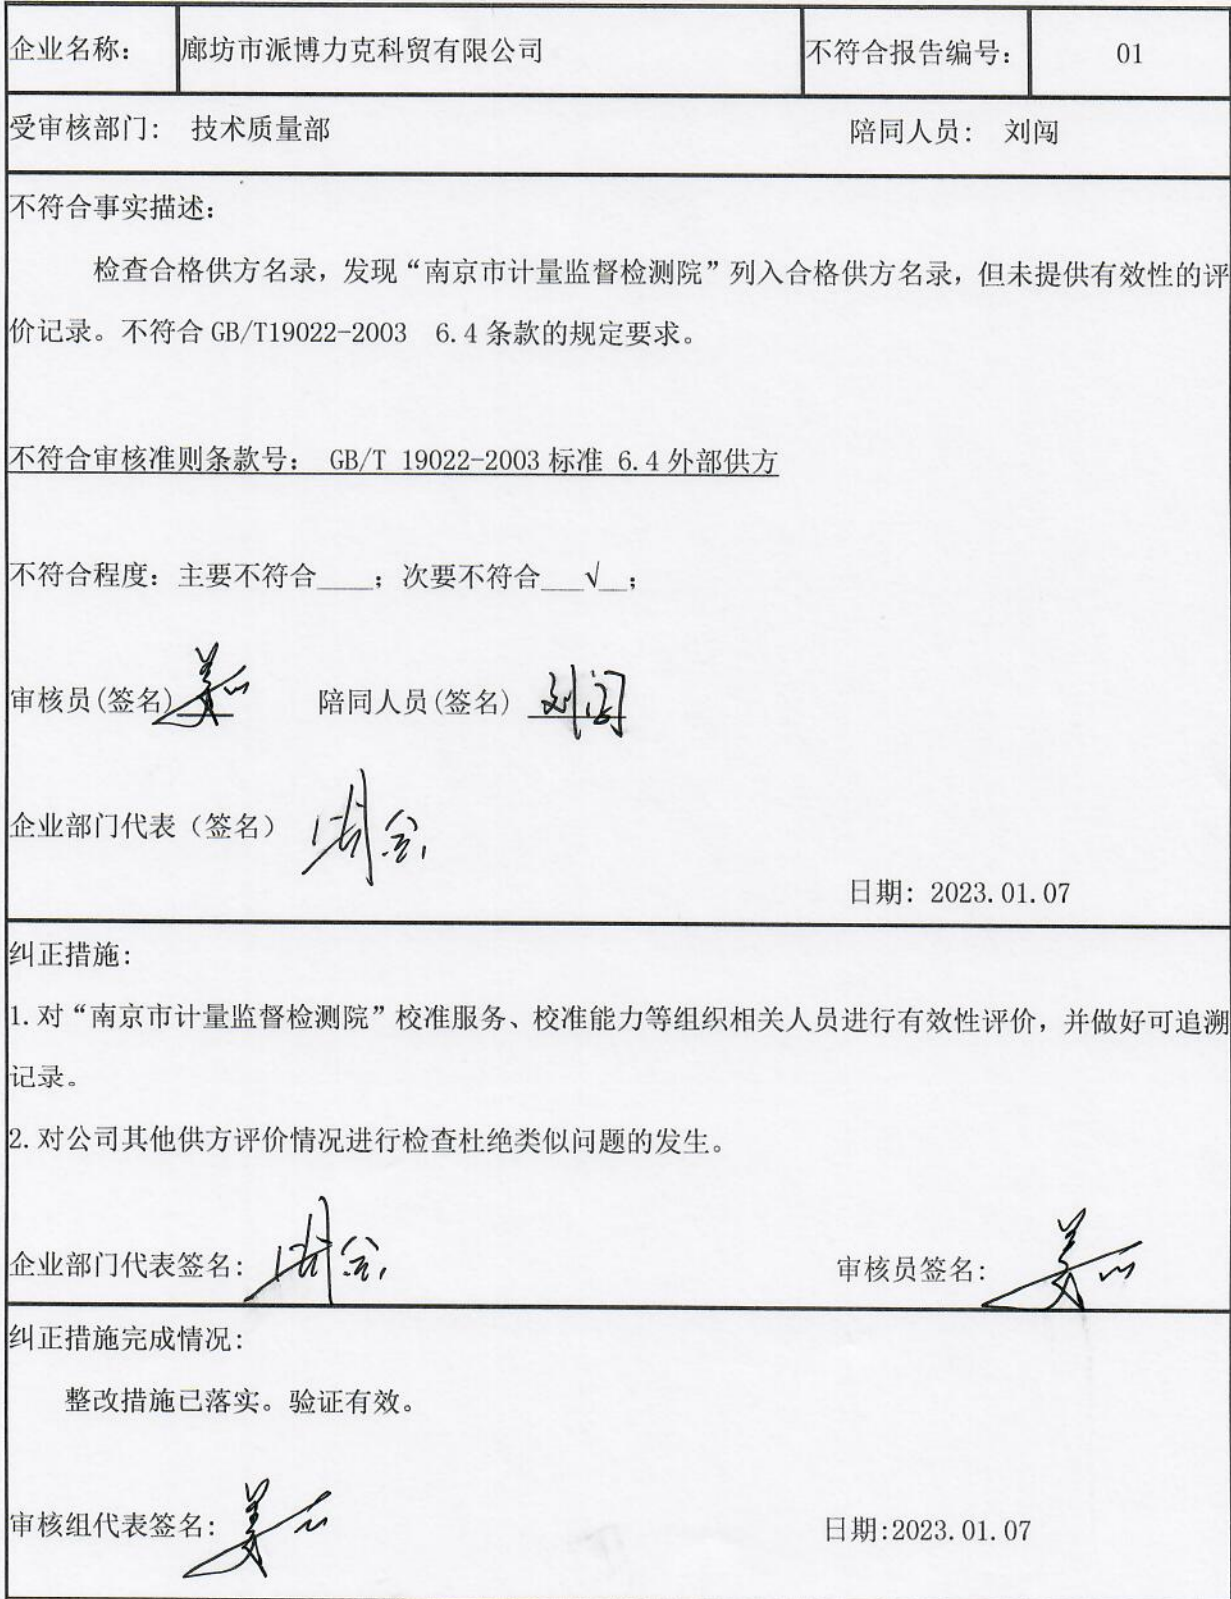 企业名称： 廊坊市派博力克科贸有限公司 不符合报告编号： 01
受审核部门： 技术质量部 陪同人员： 刘闯
不符合事实描述：
检查合格供方名录，发现“南京市计量监督检测院”列入合格供方名录，但未提供有效性的评
价记录。不符合 GB/T19022-2003 6.4 条款的规定要求。
不符合审核准则条款号： GB/T 19022-2003 标准 6.4 外部供方
不符合程度：主要不符合____；次要不符合___√__；
审核员(签名) 陪同人员(签名) 刘闯
企业部门代表（签名）
日期：2023.01.07
纠正措施：
1.对“南京市计量监督检测院”校准服务、校准能力等组织相关人员进行有效性评价，并做好可追溯
记录。
2.对公司其他供方评价情况进行检查杜绝类似问题的发生。
企业部门代表签名： 审核员签名：
纠正措施完成情况：
整改措施已落实。验证有效。
审核组代表签名： 日期:2023.01.07